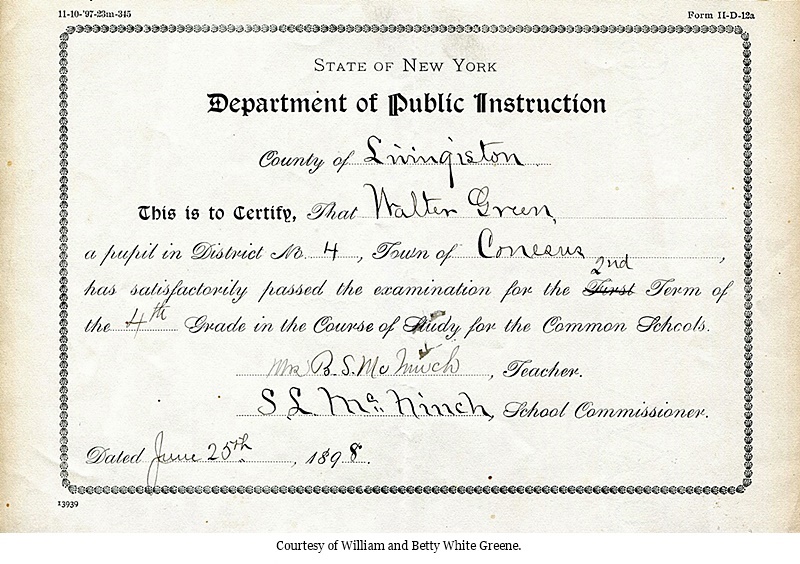 11-10-'97-23m-345 Form II-D-12a
STATE OF NEW YORK
Department of Public Instruction
County of Livingston
This is to Certify, That Walter Green,
a pupil in District No. 4, Town of Conesus,
2nd
has satisfactorily passed the examination for the First Term of
the 4th Grade in the Course of Study for the Common Schools.
Mrs B. S. McNinch, Teacher.
S L McNinch, School Commissioner.
Dated June 25th, 1898.
13939
Courtesy of William and Betty White Greene.